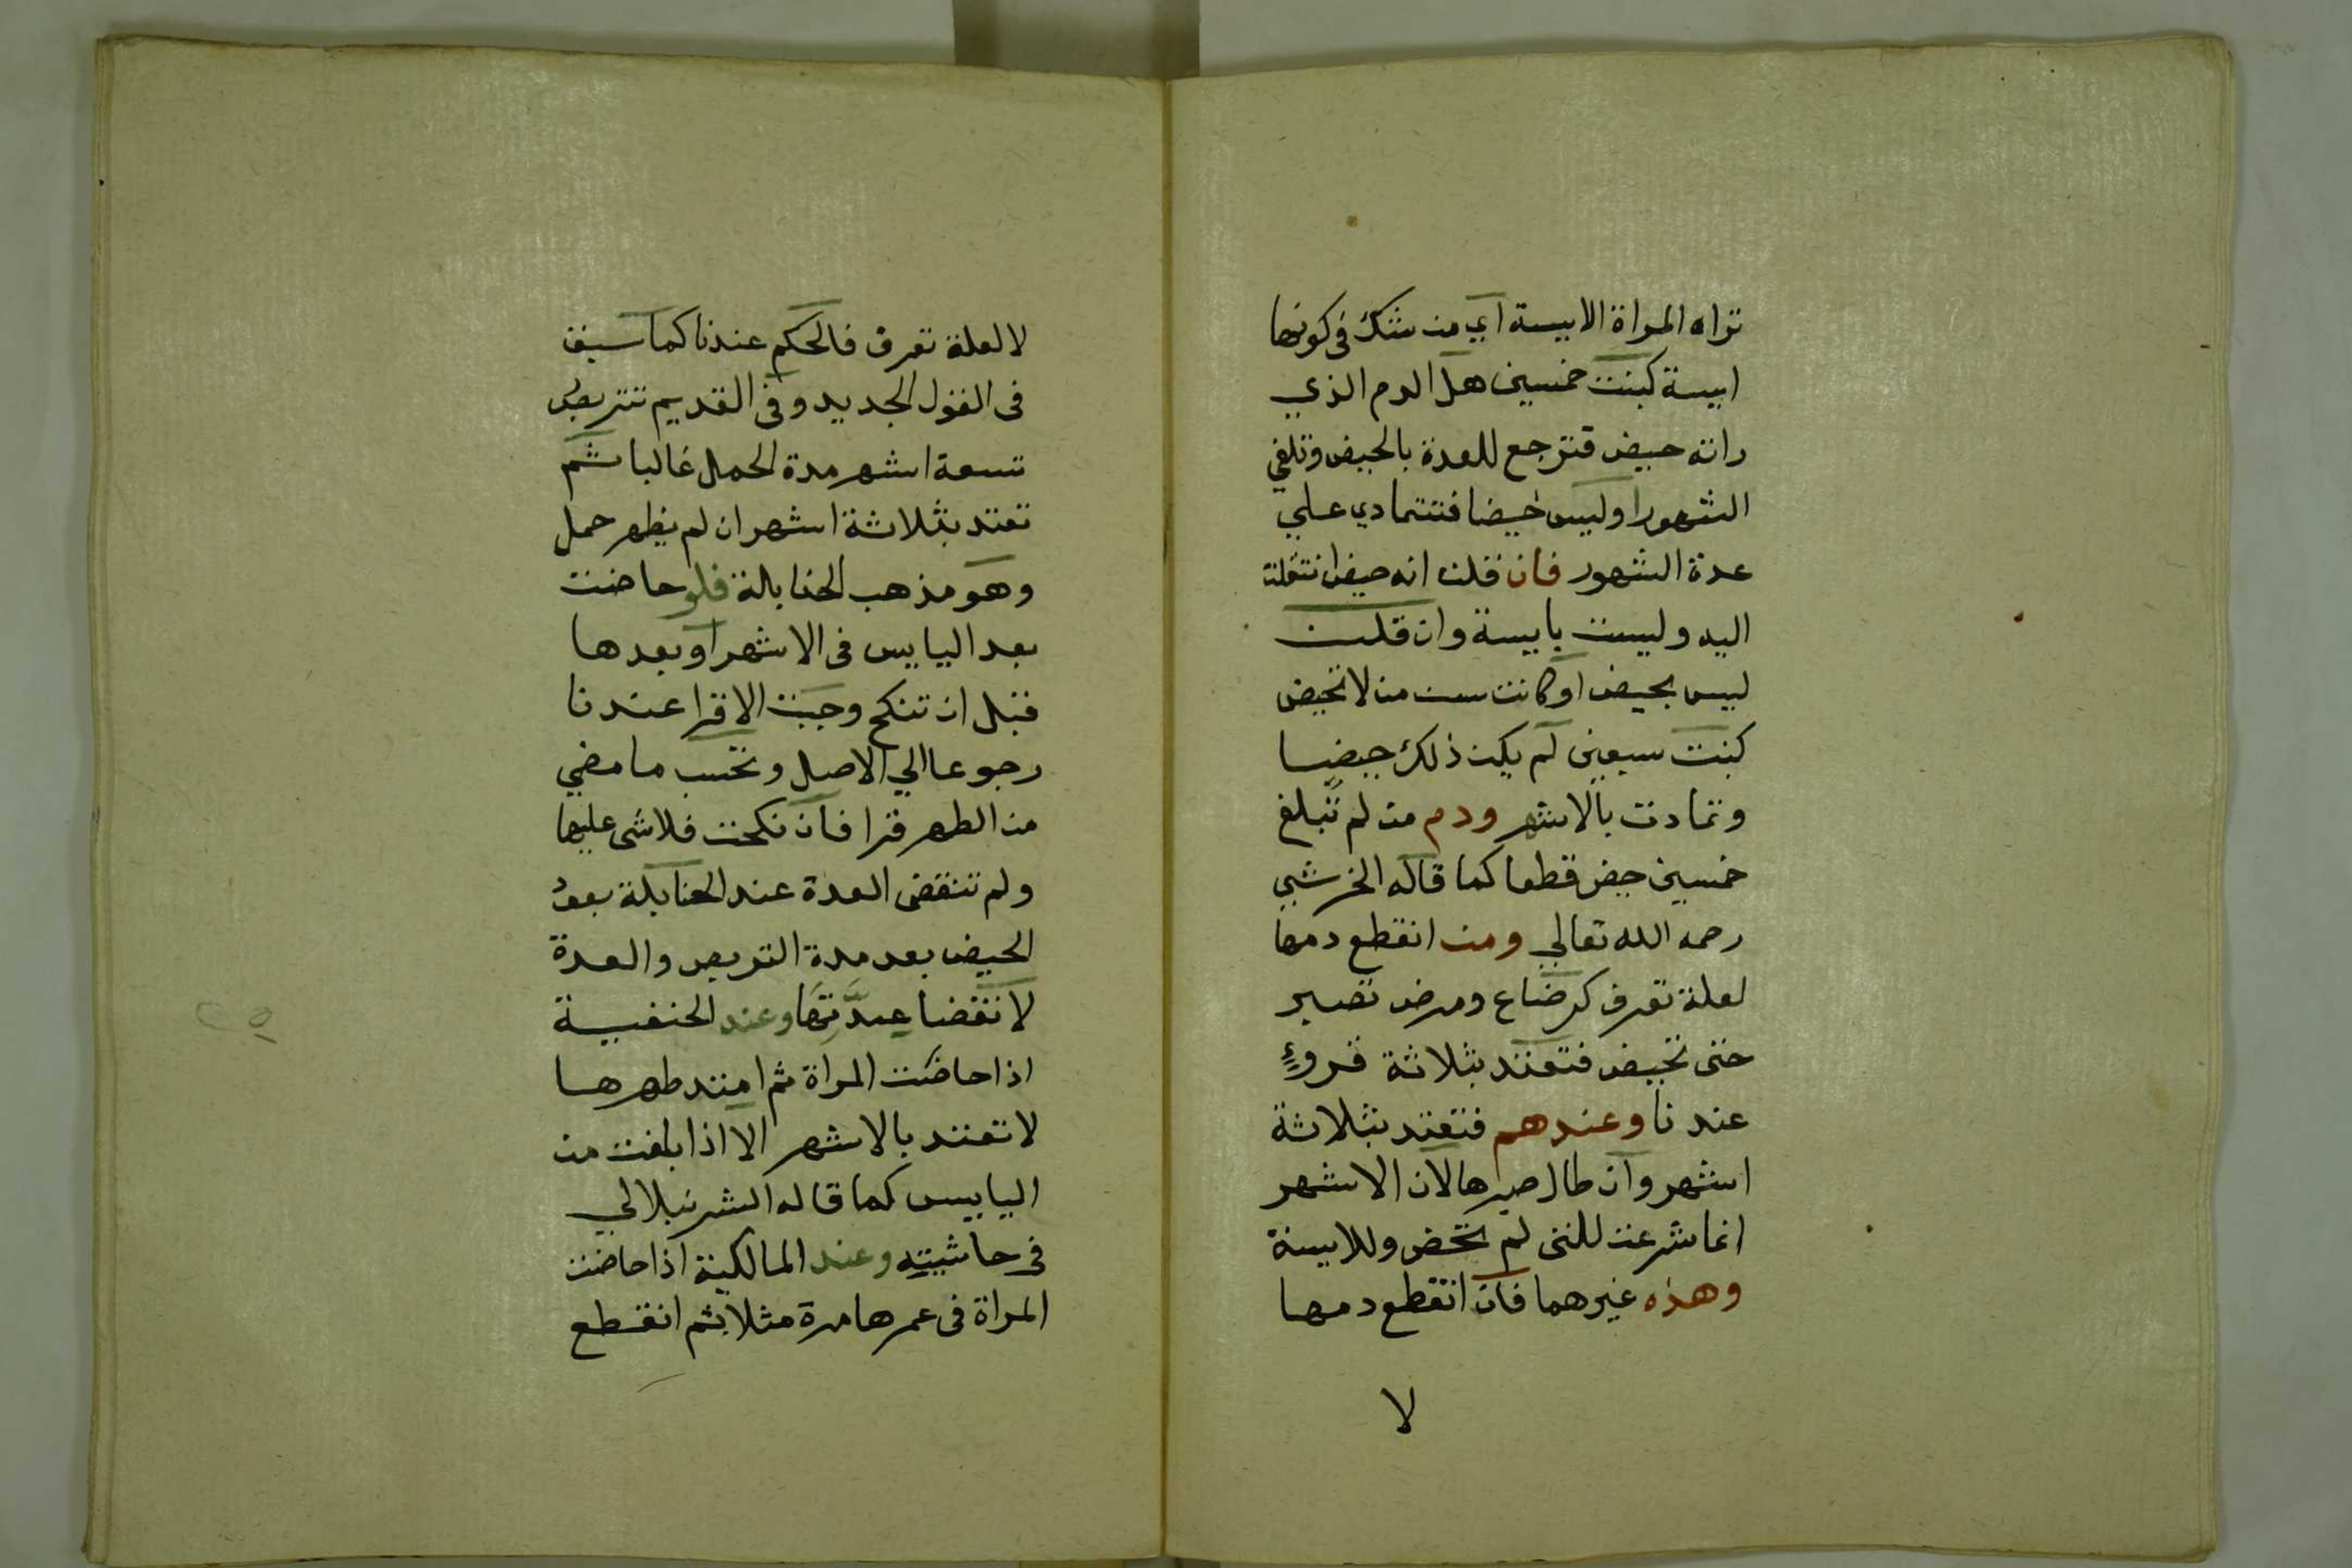 تراه المراة الابيسة اي من شك في كونها
ابيسة كبنت خمسين هل الدم الذي
راته حيض فترجع للعدة بالحيض وتلغي
الشهور او ليس حيضا فتتمادي علي
عدة الشهور فان قلن انه حيض انتقلت
اليه وليست بابيسة وان قلن
ليس بحيض او كانت ست من لا تحيض
كبنت سبعين لم يكن ذلك حيضا
وتمادت بالاشهر ودم من لم تبلغ
خمسين حيض قطعا كما قاله الخرشي
رحمه الله تعالي ومن انقطع دمها
لعلة تعرف كرضاع ومرض تصبر
حتى تحيض فتعتد بثلاثة قروءٍ
عندنا وعندهم فتعتد بثلاثة
اشهر وان طال صبرها لان الاشهر
انما شرعت للتي لم تحض وللابيسة
وهذه غيرهما فان انقطع دمها
لا
لا لعلة تعرف فالحكم عندنا كما سبق
فى القول الجديد وفى القديم تتربص
تسعة اشهر مدة الحمل غالبا ثم
تعتد بثلاثة اشهر ان لم يظهر حمل
وهو مذهب الحنابلة فلو حاضت
بعد اليايس فى الاشهر او بعدها
قبل ان تنكح وجبت الاقرا عندنا
رجوعا الي الاصل وتحسب ما مضي
من الطهر قرا فان نكحت فلا شى عليها
ولم تنقض العدة عند الحنابلة بعود
الحيض بعد مدة التربص والعدة
لانقضا عِدَّتِهَا وعند الحنفية
اذا حاضت المراة ثم امتد طهرها
لا تعتد بالاشهر الا اذا بلغت من
اليايس كما قاله الشرنبلالي
في حاشيته وعند المالكية اذا حاضت
المراة فى عمرها مرة مثلا ثم انقطع